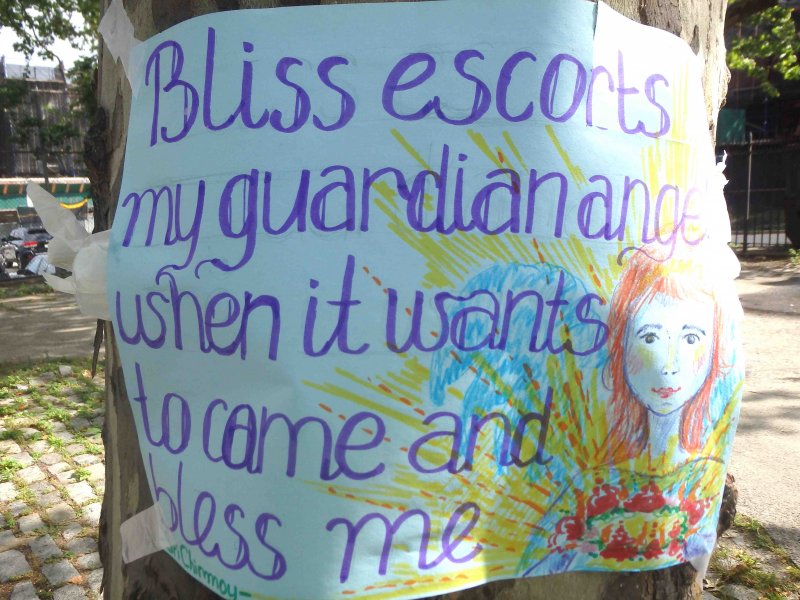 Bliss escorts
my guardian ange
when it wants
to come and
bless me
Chinmoy-